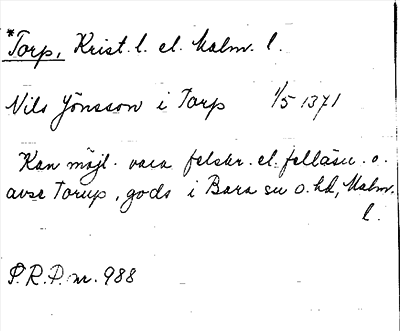 *Torp, Krist. l. el. Malm. l.
Nils Jönsson i Torp 1/5 1371
Kan möjl. vara felskr. el. felläsn. o.
avse Torup, gods i Bara sn o. hd, Malm.
l.
P.R.P. nr. 988